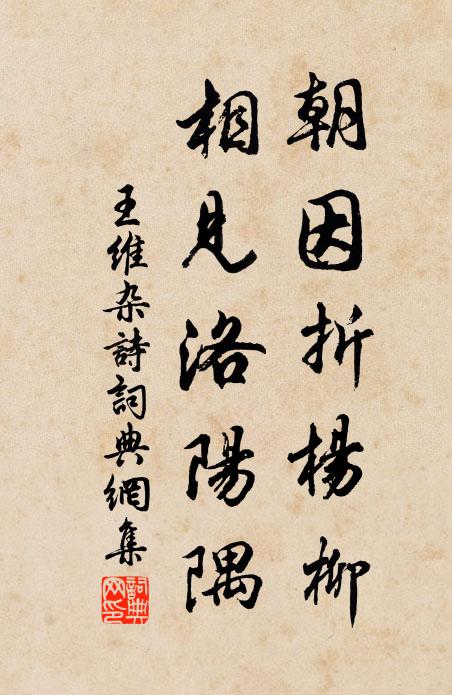 朝因折楊柳
相見洛陽隅
王維杂詩詞典網集
詞典網印